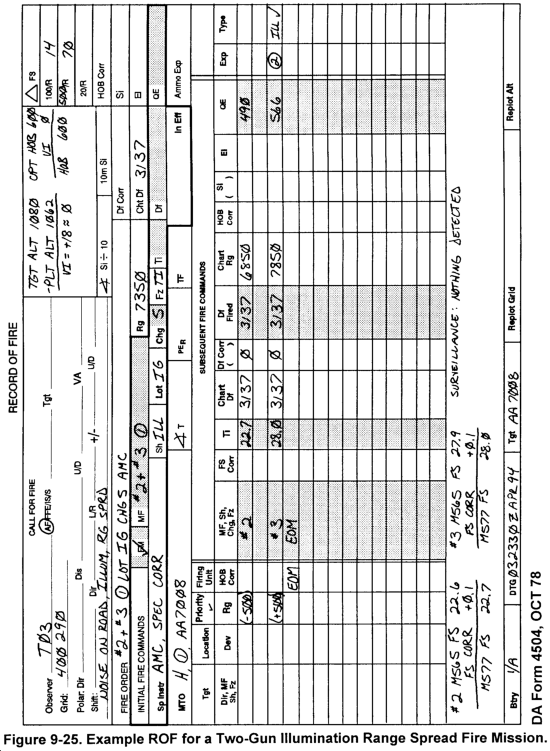 RECORD OF FIRE
CALL FOR FIRE
Observer TØ3 AF/FFE/IS/S Tgt
Grid: 4ØØ 29Ø
Polar: Dir Dis U/D VA
Shift: Dir L/R +/- U/D
NOISE ON ROAD, ILLUM, RG SPRD
TGT ALT 1Ø8Ø
-PLT ALT 1Ø62
VI = +18 ≈ Ø
OPT HOB 6ØØ
VI Ø
HOB 6ØØ
△ FS
100/R 14
500/R 7Ø
20/R
∢ Si ÷ 10 10m Si HOB Corr
FIRE ORDER #2 + #3 ① LOT IG CHG 5 AMC Df Corr Si
INITIAL FIRE COMMANDS FM MF #2 + #3 ① Rg 735Ø Cht Df 3137 El
Sp Instr AMC, SPEC CORR Sh ILL Lot IG Chg 5 Fz TI Ti Df QE
MTO H, ① AA7ØØ8 ∢ T PER TF In Eff Ammo Exp
Tgt Location Priority Firing Unit SUBSEQUENT FIRE COMMANDS
Dir, MF Sh, Fz Dev Rg HOB Corr MF, Sh, Chg, Fz FS Corr Ti Chart Df Df Corr ( ) Df Fired Chart Rg HOB Corr Si ( ) El QE Exp Type
(-5ØØ) #2 22.7 3137 Ø 3137 685Ø 49Ø
(+5ØØ) #3 28.Ø 3137 Ø 3137 785Ø 566 ② ILL ✓
EOM EOM
#2 M565 FS 22.6
FS CORR +Ø.1
M577 FS 22.7
#3 M565 FS 27.9
FS CORR +Ø.1
28.Ø
SURVEILLANCE: NOTHING DETECTED
Btry 1/A DTG Ø3233Ø Z APR 94 Tgt AA 7ØØ8 Replot Grid Replot Alt
DA Form 4504, OCT 78
Figure 9-25. Example ROF for a Two-Gun Illumination Range Spread Fire Mission.